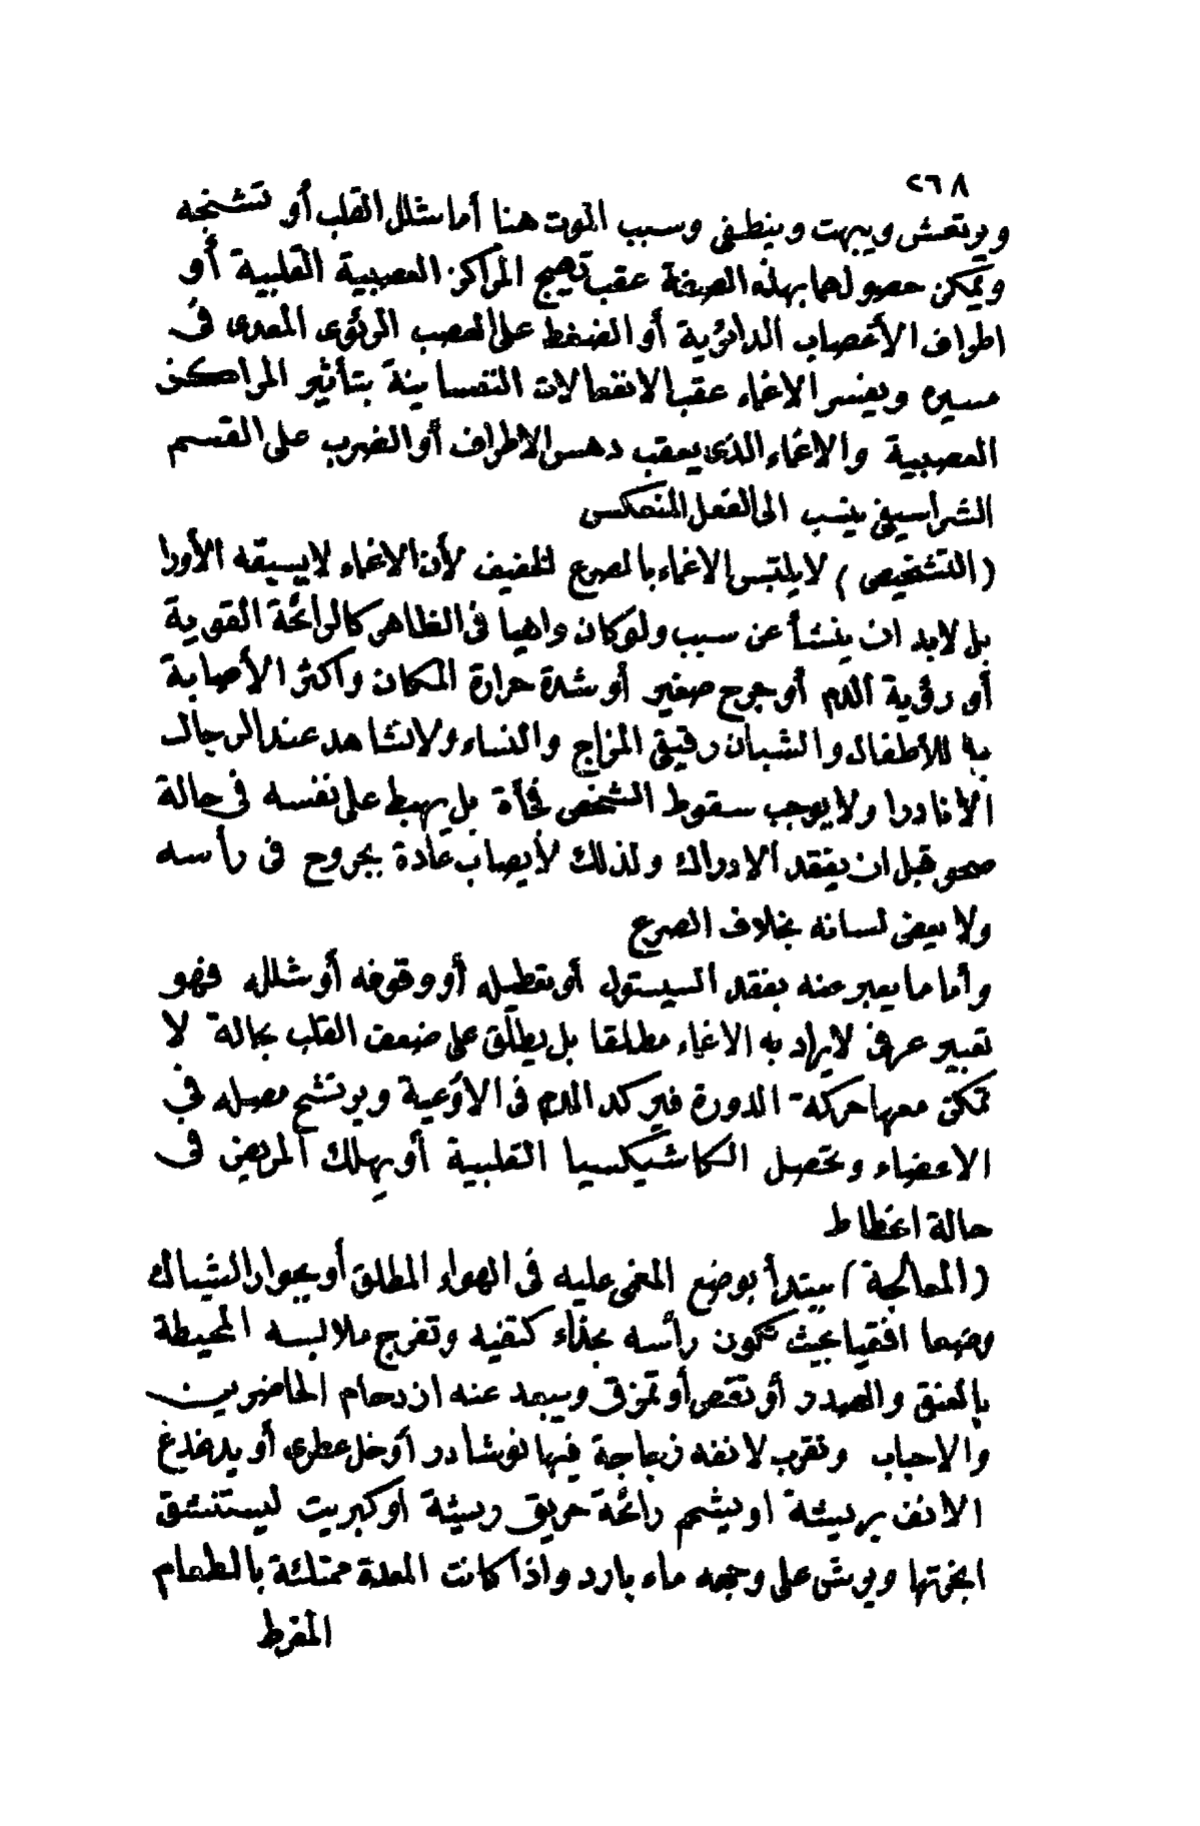 ٢٦٨
ويرتعش ويبهت وينطفى وسبب الموت هنا أما شلل القلب أو تشنجه
ويمكن حصولهما بهذه الصفة عقب تهيج المراكز العصبية القلبية أو
اطراف الأعصاب الدائرية أو الضغط على العصب الرئوى المعدى فى
مسيره ويفسر الاغماء عقب الانفعالات النفسانية بتأثير المراكز
العصبية والاغماء الذى يعقب دهس الاطراف أو الضرب على القسم
الشراسيفى ينسب الى الفعل المنعكس
(التشخيص) لا يلتبس الاغماء بالصرع الخفيف لأن الاغماء لا يسبقه الأورا
بل لابد ان ينشأ عن سبب ولو كان واهيا فى الظاهر كالرائحة القوية
أو رؤية الدم أو جرح صغير أو شدة حرارة المكان وأكثر الأصابة
به للأطفال والشبان رقيقى المزاج والنساء ولا تشاهد عند الرجال
الا نادرا ولا يوجب سقوط الشخص فجأة بل يهبط على نفسه فى حالة
صحو قبل ان يفقد الادراك ولذلك لا يصاب عادة بجروح فى رأسه
ولا يعض لسانه بخلاف الصرع
وأما ما يعبر عنه بفقد السيستول أو تعطيله أو وقوفه أو شلله فهو
تعبير عرفى لا يراد به الاغماء مطلقا بل يطلق على ضعف القلب بحالة لا
تمكن معها حركة الدورة فيركد الدم فى الأوعية ويرتشح مصله فى
الاعضاء وتحصل الكاشيكسيا القلبية أو يهلك المريض فى
حالة انحطاط
(المعالجة) يبتدأ بوضع المغمى عليه فى الهواء المطلق أو بجوار الشباك
وضعا افقيا بحيث تكون رأسه بحذاء كتفيه وتفرج ملابسه المحيطة
بالعنق والصدر أو تقص أو تمزق ويبعد عنه ازدحام الحاضرين
والاحباب وتقرب لانفه زجاجة فيها نوشادر أو خل عطرى أو يدغدغ
الانف بريشة او يشم رائحة حريق ريشة أو كبريت ليستنشق
ابخرتها ويرش على وجهه ماء بارد واذا كانت المعدة ممتلئة بالطعام
المفرط